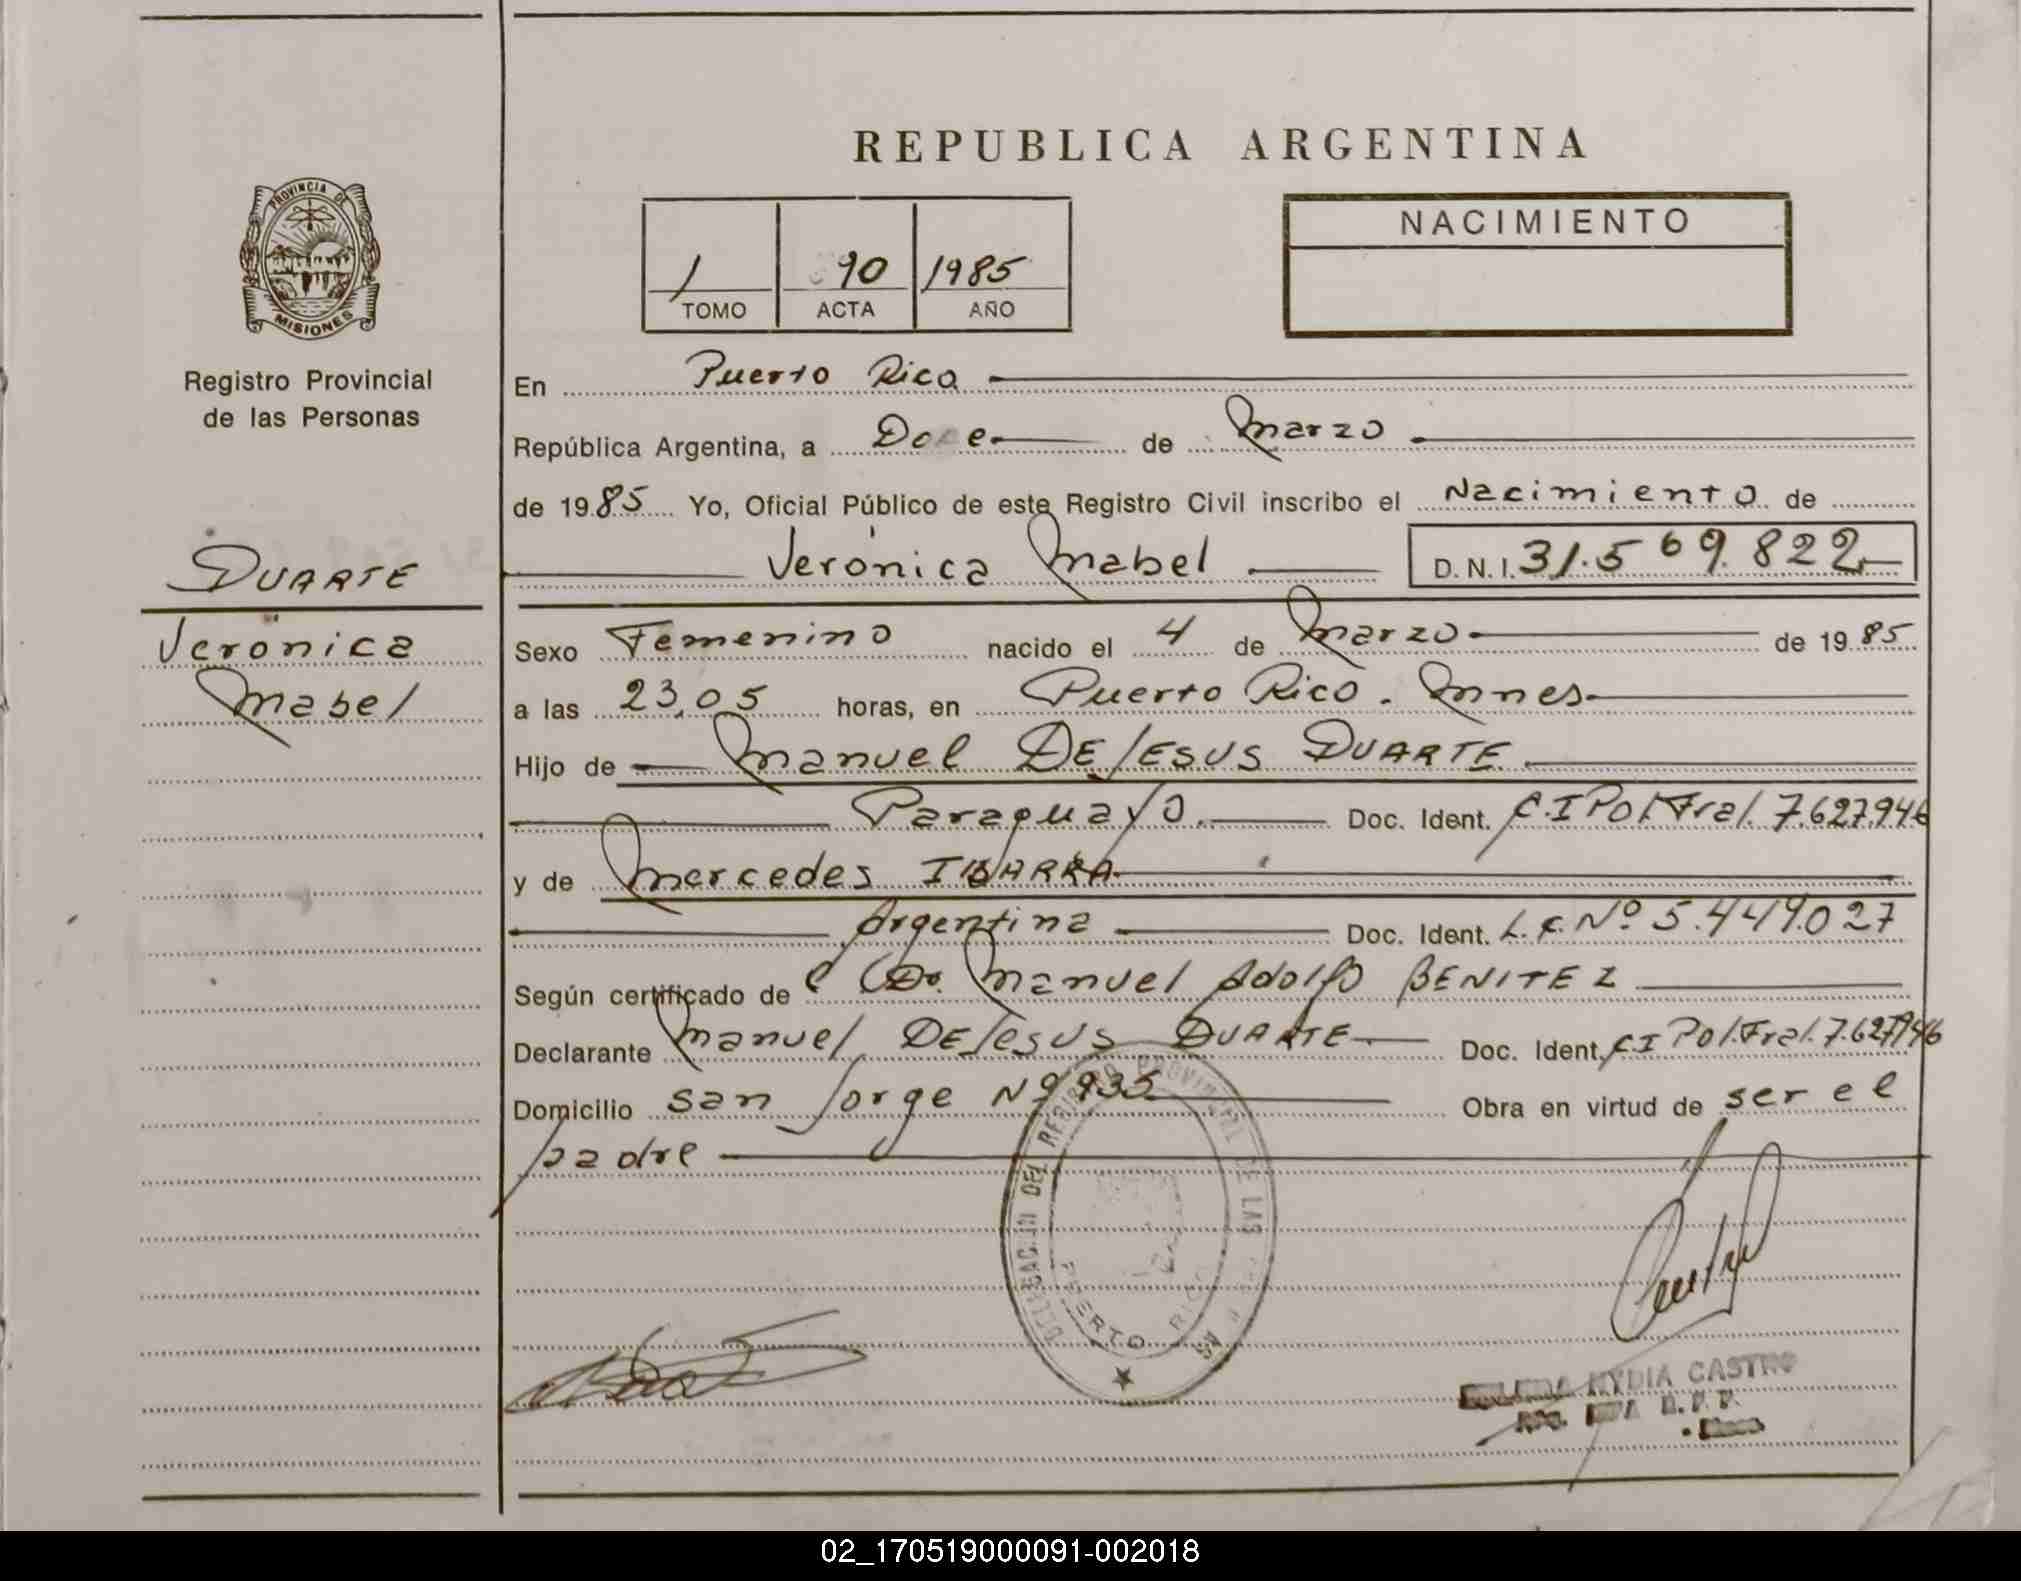 REPUBLICA ARGENTINA
PROVINCIA DE
MISIONES
Registro Provincial
de las Personas
DUARTE
Verónica
Mabel
1 90 1985
TOMO ACTA AÑO
NACIMIENTO
En Puerto Rico
República Argentina, a Doce de Marzo
de 1985 Yo, Oficial Público de este Registro Civil inscribo el Nacimiento de
Verónica Mabel D.N.I. 31.569.822
Sexo Femenino nacido el 4 de Marzo de 1985
a las 23,05 horas, en Puerto Rico. Mnes
Hijo de Manuel DE JESUS DUARTE
Paraguayo Doc. Ident. C.I Pol. Fral. 7.627.946
y de Mercedes IBARRA
Argentina Doc. Ident. L.C. Nº 5.449.027
Según certificado de Dr. Manuel Adolfo BENITEZ
Declarante Manuel DE Jesus DUARTE Doc. Ident. C.I Pol. Fral. 7.627.946
Domicilio San Jorge Nº 935 Obra en virtud de ser el
padre
DELEGACION DEL REGISTRO PROVINCIAL DE LAS
PUERTO RICO
NYDIA CASTRO
02_170519000091-002018